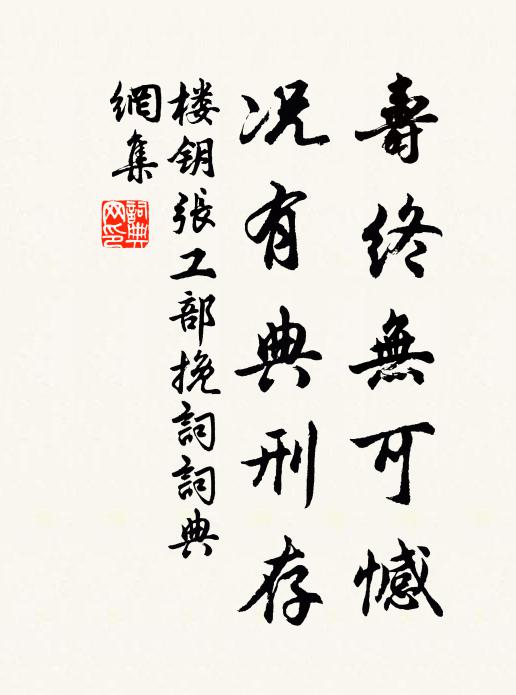 壽終無可憾
况有典刑存
楼钥張工部挽詞詞典
網集
詞典網印